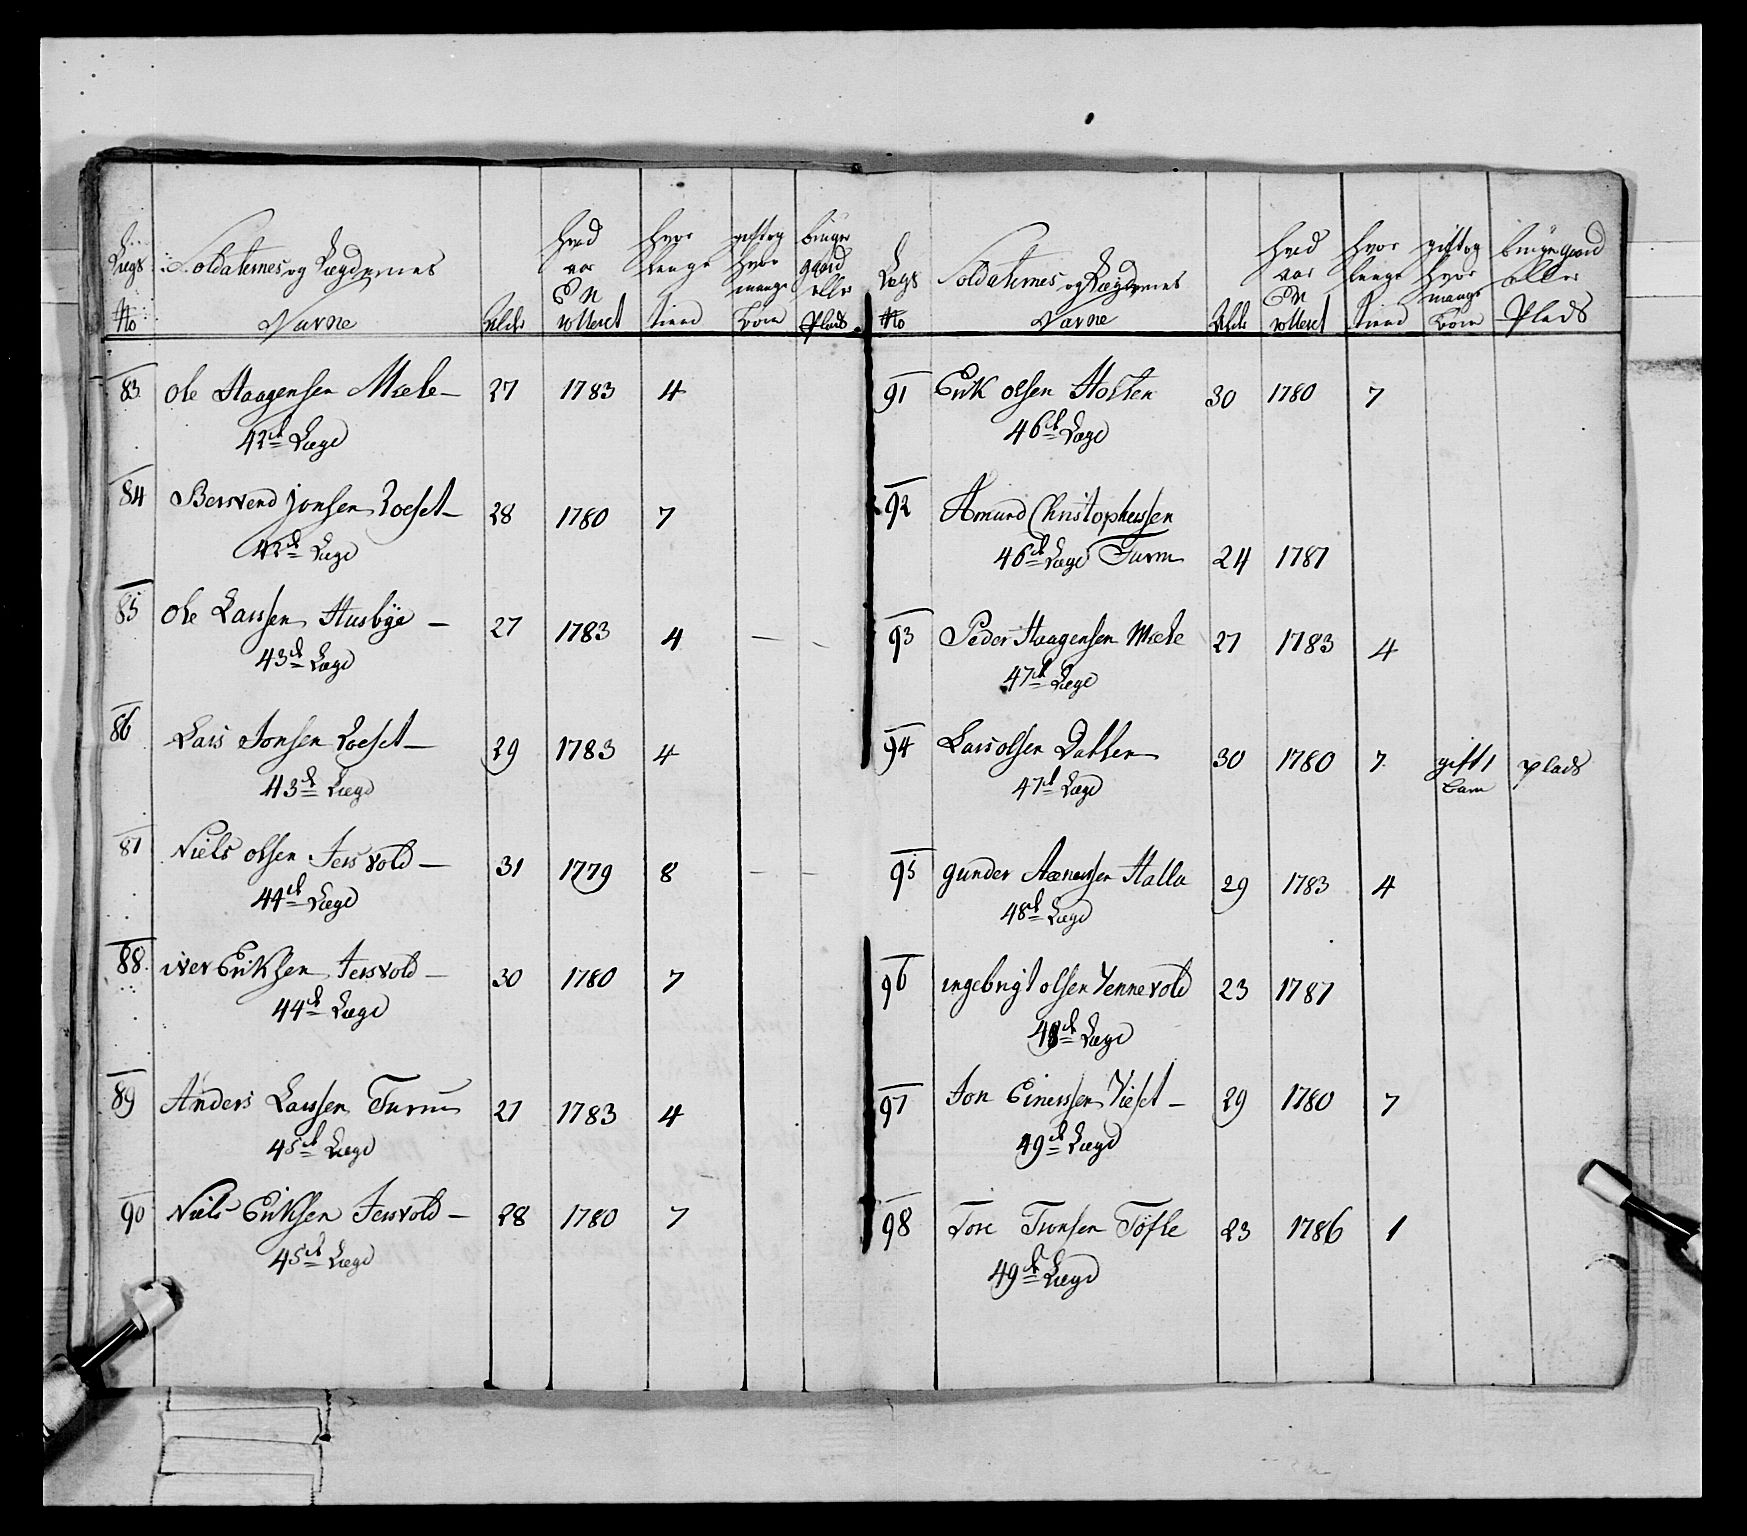 Lægs Soldaternes og Lægdernes hvad hvor gift og buger
No Navne Alder aar længe hvor gaard
En tient mange eller
rolleret Børn Plads
83 Ole Haagensen Miele – 27 1783 4
42de Lægd
84 Bersvend Jonsen Roeset – 28 1780 7
42de Lægd
85 Ole Larssen Husbye – 27 1783 4 – –
43de Lægd
86 Lars Jonsen Roeset – 29 1783 4
43de Lægd
87 Niels Olsen Jersvold – 31 1779 8 – –
44de Lægd
88 iver Eriksen Jersvold – 30 1780 7
44de Lægd
89 Anders Larssen Furun 27 1783 4
45de Lægd
90 Niels Eriksen Jersvold – 28 1780 7
45de Lægd
Lægs Soldaternes og Lægdernes hvad hvor gift og buger gaard
No Navne Alder aar længe hvor eller
En tient mange Plads
rolleret Børn
91 Erik Olsen Holten 30 1780 7
46de Lægd
92 Amund Christophersen
46de Lægd Furun 24 1787
93 Peder Haagensen Miele 27 1783 4
47de Lægd
94 Lars Olsen Dahlen 30 1780 7 gift 1 plads
47de Lægd Barn
95 gunder Arnessen Halla 29 1783 4
48de Lægd
96 ingebrigt Olsen Vennevold 23 1787
48de Lægd
97 Jon Einersen Vieset – 29 1780 7
49de Lægd
98 Tore Tronsen Tøfte 23 1786 1
49de Lægd